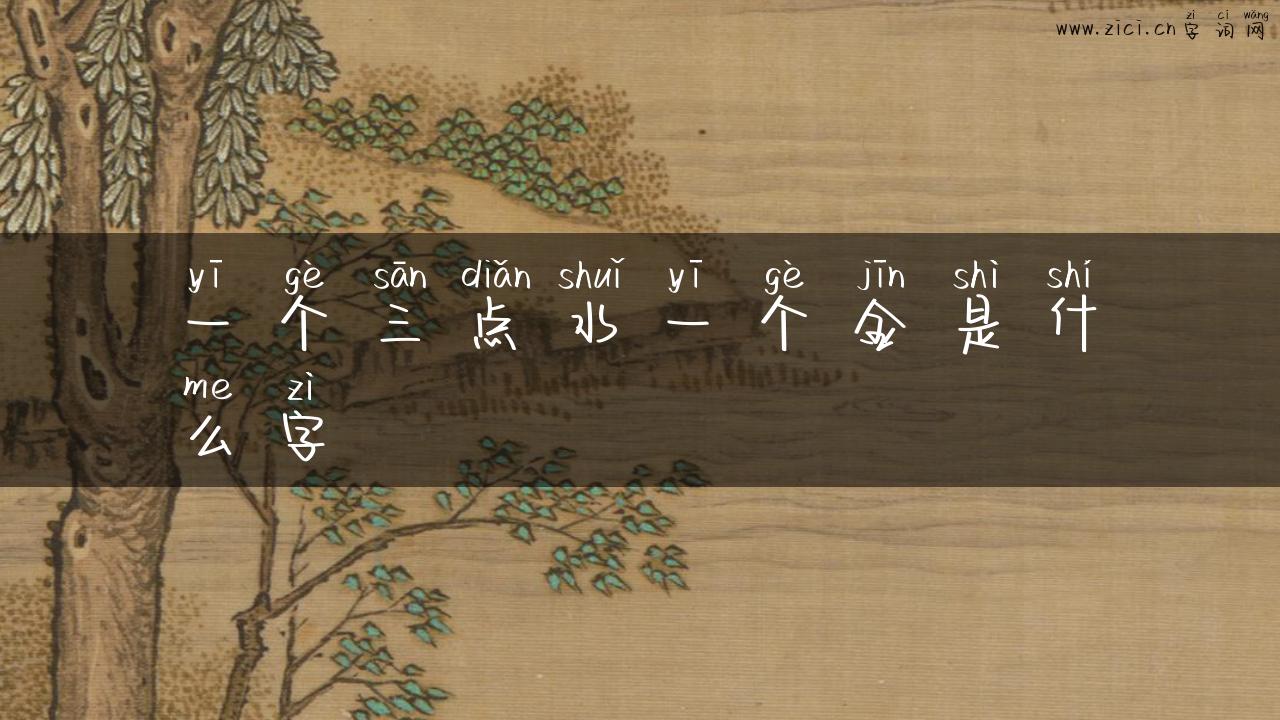 zì cí wǎng
www.zici.cn 字词网
yī gè sān diǎn shuǐ yī gè jīn shì shí
一个三点水一个金是什
me zì
么字